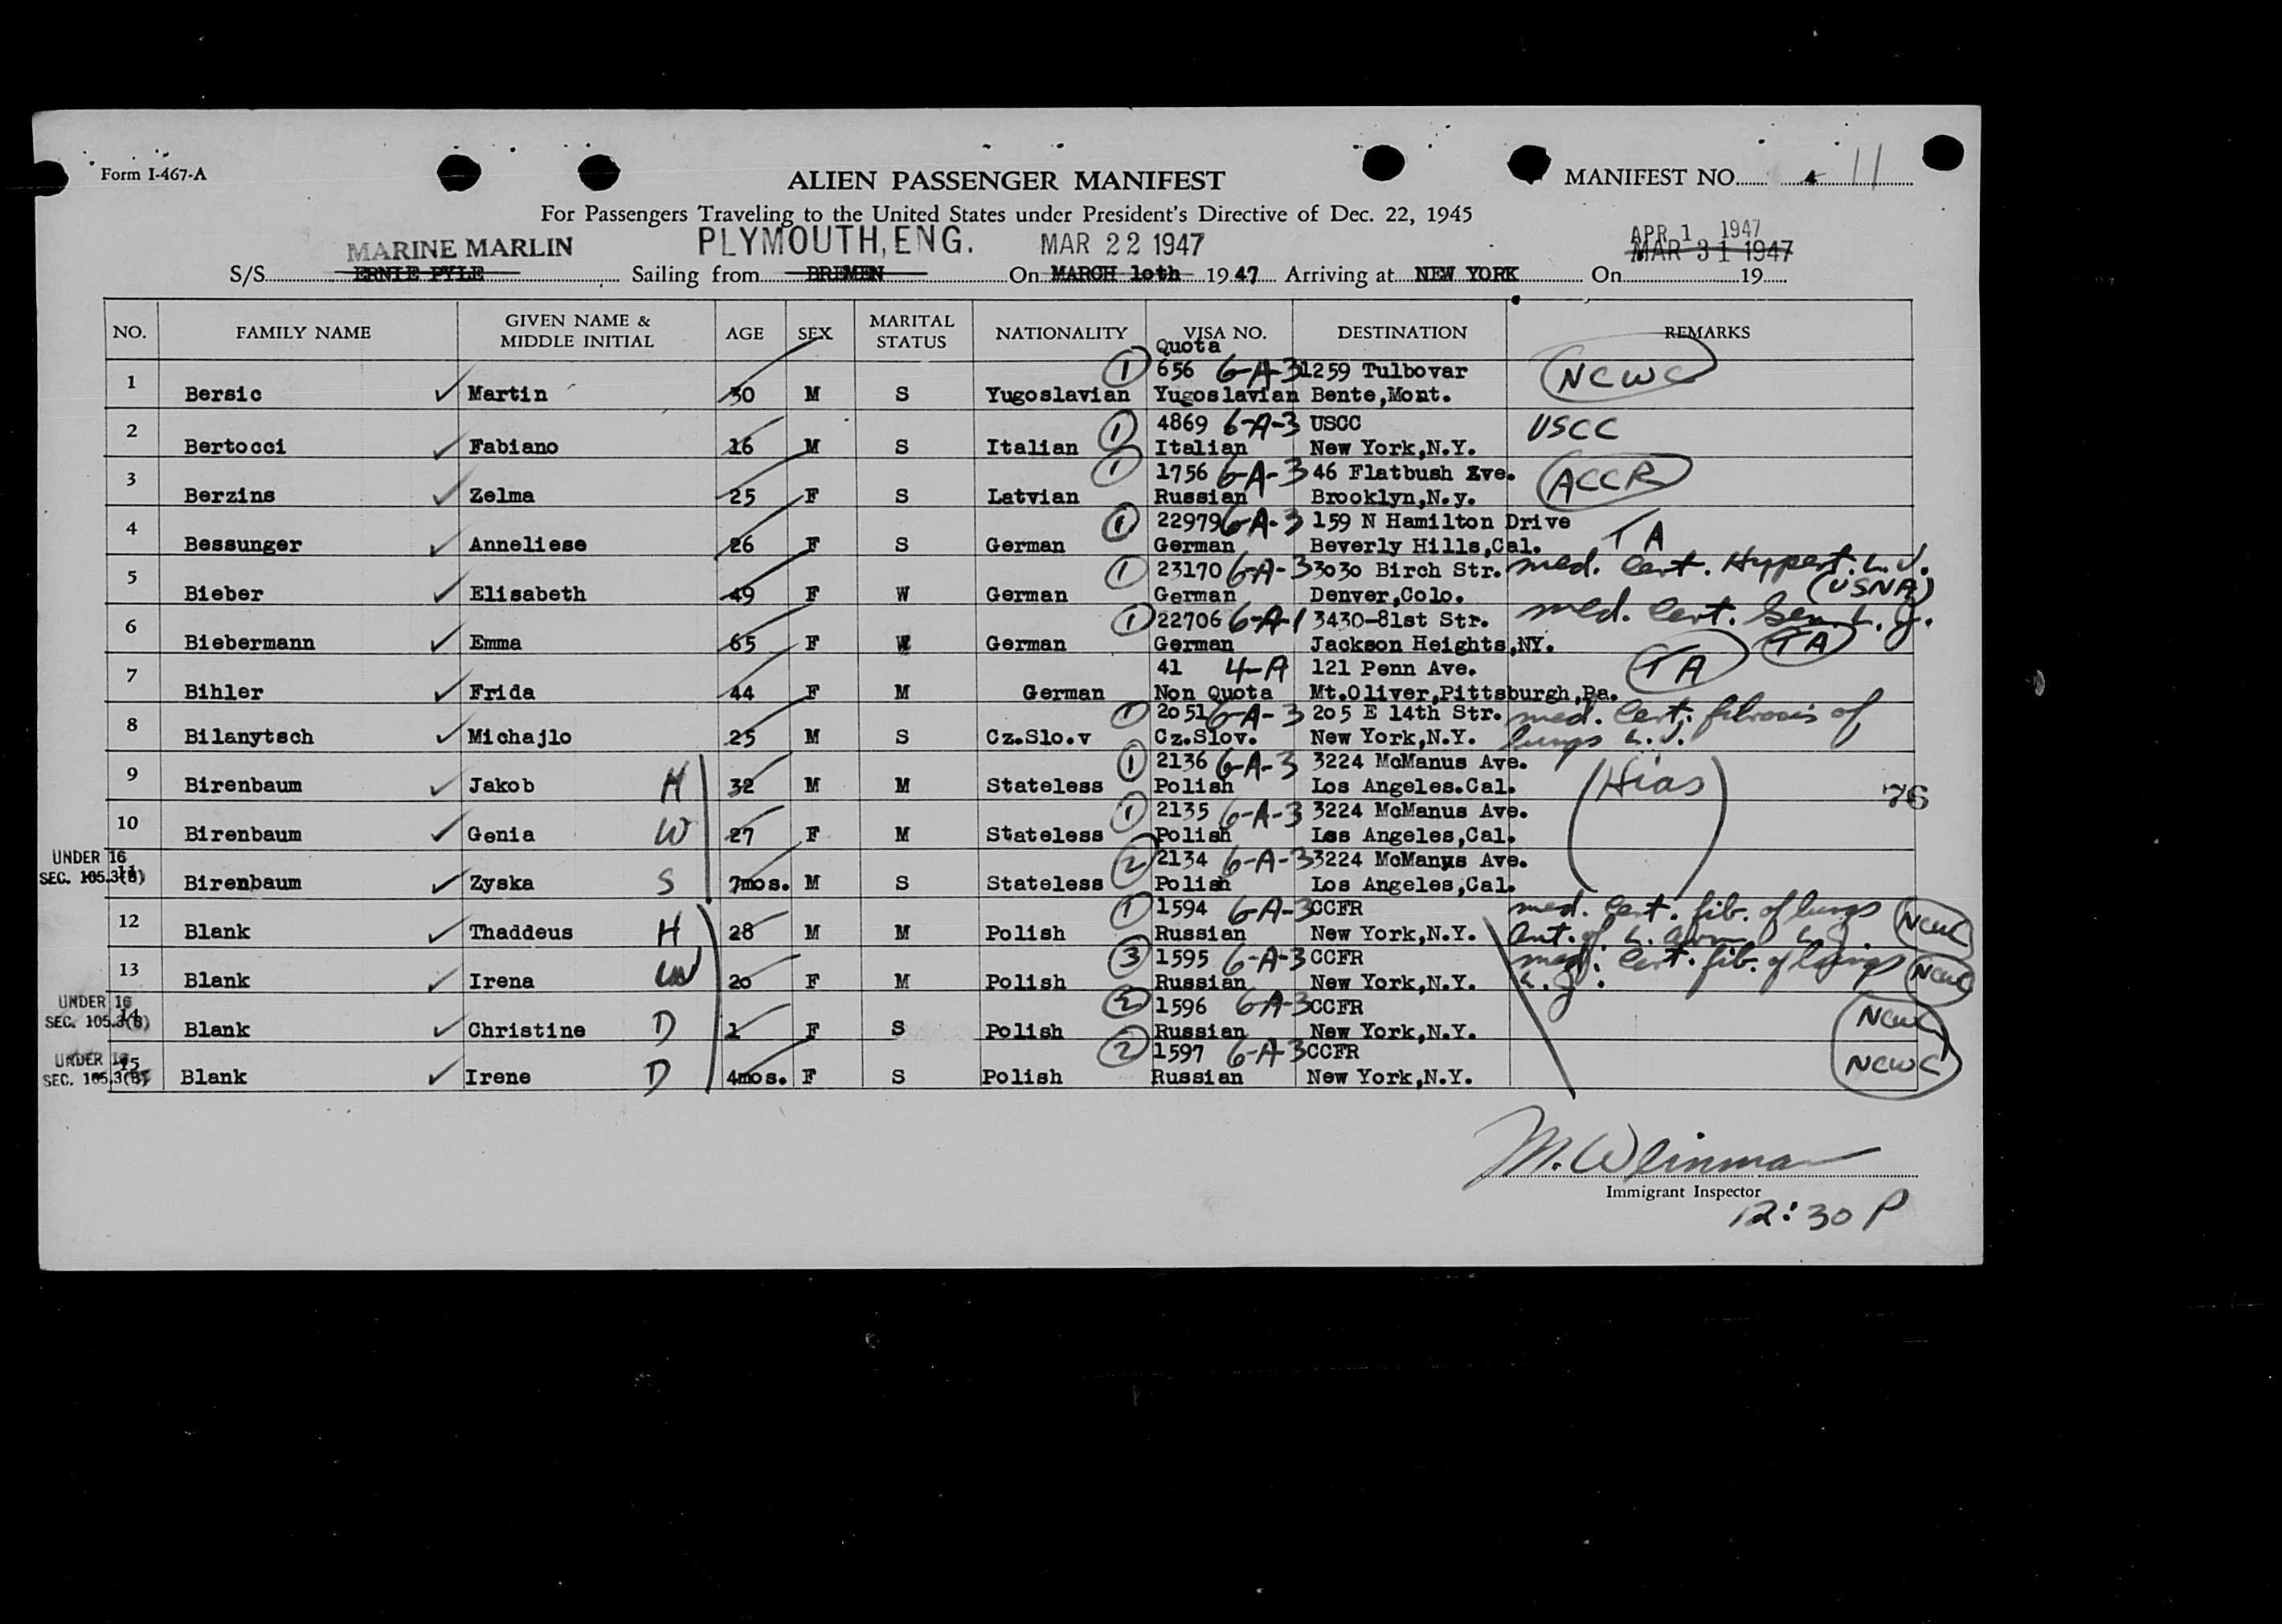 Form I-467-A
ALIEN PASSENGER MANIFEST
MANIFEST NO. 4 11
For Passengers Traveling to the United States under President's Directive of Dec. 22, 1945
MARINE MARLIN PLYMOUTH, ENG. MAR 22 1947 APR 1 1947
MAR 31 1947
S/S ERNIE PYLE Sailing from BREMEN On MARCH 10th 1947 Arriving at NEW YORK On 19
NO. FAMILY NAME GIVEN NAME & MIDDLE INITIAL AGE SEX MARITAL STATUS NATIONALITY VISA NO. DESTINATION REMARKS
Quota
1 Bersic Martin 30 M S Yugoslavian 1 656 6-A-3 1259 Tulbovar NCWC
Yugoslavian Bente,Mont.
2 Bertocci Fabiano 16 M S Italian 1 4869 6-A-3 USCC USCC
Italian New York,N.Y.
3 Berzins Zelma 25 F S Latvian 1 1756 6-A-3 46 Flatbush Ave. ACCR
Russian Brooklyn,N.y.
4 Bessunger Anneliese 26 F S German 1 22979 6-A-3 159 N Hamilton Drive TA
German Beverly Hills,Cal.
5 Bieber Elisabeth 49 F W German 1 23170 6-A-3 3030 Birch Str. med. Cert. Hypert.
German Denver,Colo. (USNA)
6 Biebermann Emma 65 F W German 1 22706 6-A-1 3430-81st Str. med. Cert. Sen.
German Jackson Heights,NY. TA
7 Bihler Frida 44 F M German 41 4-A 121 Penn Ave. TA
Non Quota Mt.Oliver,Pittsburgh,Pa.
8 Bilanytsch Michajlo 25 M S Cz.Slo.v 1 2051 6-A-3 205 E 14th Str. med. Cert. fibrosis of
Cz.Slov. New York,N.Y. lungs
9 Birenbaum Jakob H 32 M M Stateless 1 2136 6-A-3 3224 McManus Ave. (Hias)
Polish Los Angeles.Cal. 76
10 Birenbaum Genia W 27 F M Stateless 1 2135 6-A-3 3224 McManus Ave.
Polish Los Angeles,Cal.
UNDER 16
SEC. 105.3(B)
11 Birenbaum Zyska S 7mos. M S Stateless 2 2134 6-A-3 3224 McManys Ave.
Polish Los Angeles,Cal.
12 Blank Thaddeus H 28 M M Polish 1 1594 6-A-3 CCFR med. Cert. fib. of lungs NCWC
Russian New York,N.Y.
13 Blank Irena W 20 F M Polish 3 1595 6-A-3 CCFR med. Cert. fib. of lungs NCWC
Russian New York,N.Y.
UNDER 16
SEC. 105.3(B)
14 Blank Christine D 1 F S Polish 2 1596 6-A-3 CCFR NCWC
Russian New York,N.Y.
UNDER 16
SEC. 105.3(B)
15 Blank Irene D 4mos. F S Polish 2 1597 6-A-3 CCFR NCWC
Russian New York,N.Y.
M. Weinman
Immigrant Inspector
12:30 P